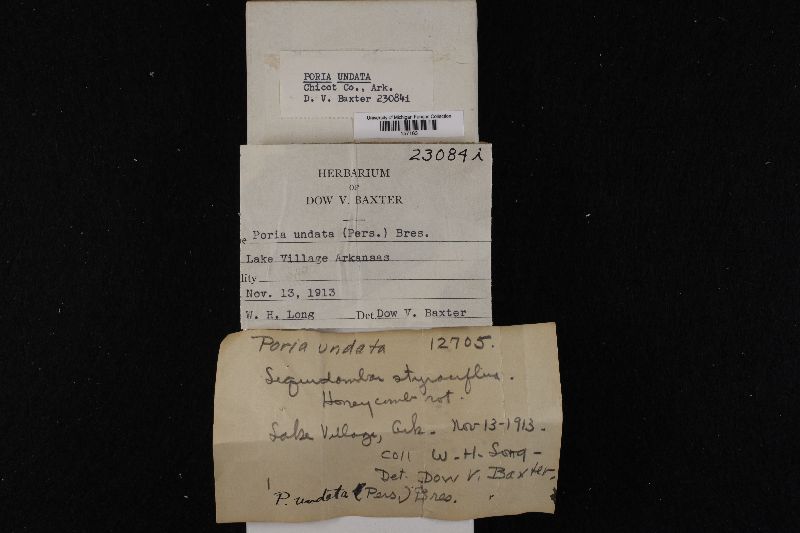 PORIA UNDATA
Chicot Co., Ark.
D. V. Baxter 23084i
University of Michigan Fungus Collection
23084 i
HERBARIUM
OF
DOW V. BAXTER
e Poria undata (Pers.) Bres.
Lake Village Arkansas
lity
Nov. 13, 1913
W. H. Long Det. Dow V. Baxter
Poria undata 12705.
styraciflua.
Honeycomb rot.
Lake Village, Ark. Nov 13-1913.
Coll W. H. Long -
Det. Dow V. Baxter.
P. undata (Pers.) Bres.